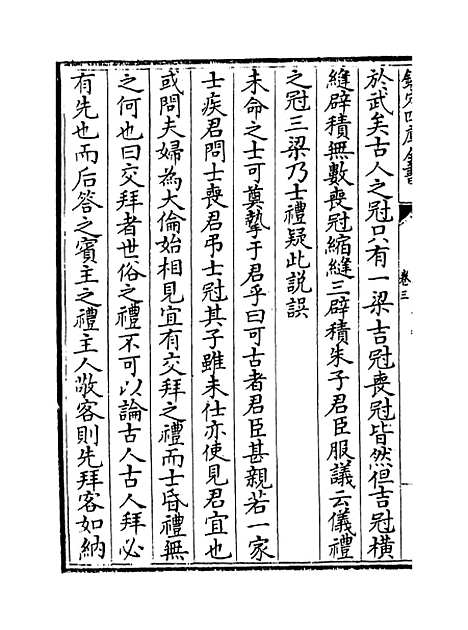 欽定四庫全書
卷三
於武矣古人之冠只有一梁吉冠喪冠皆然但吉冠橫
縫辟積無數喪冠縮縫三辟積朱子君臣服議云儀禮
之冠三梁乃士禮疑此説誤
未命之士可奠摯于君乎曰可古者君臣甚親若一家
士疾君問士喪君弔士冠其子雖未仕亦使見君宜也
或問夫婦為大倫始相見宜有交拜之禮而士昏禮無
之何也曰交拜者世俗之禮不可以論古人古人拜必
有先也而后答之賓主之禮主人敬客則先拜客如納